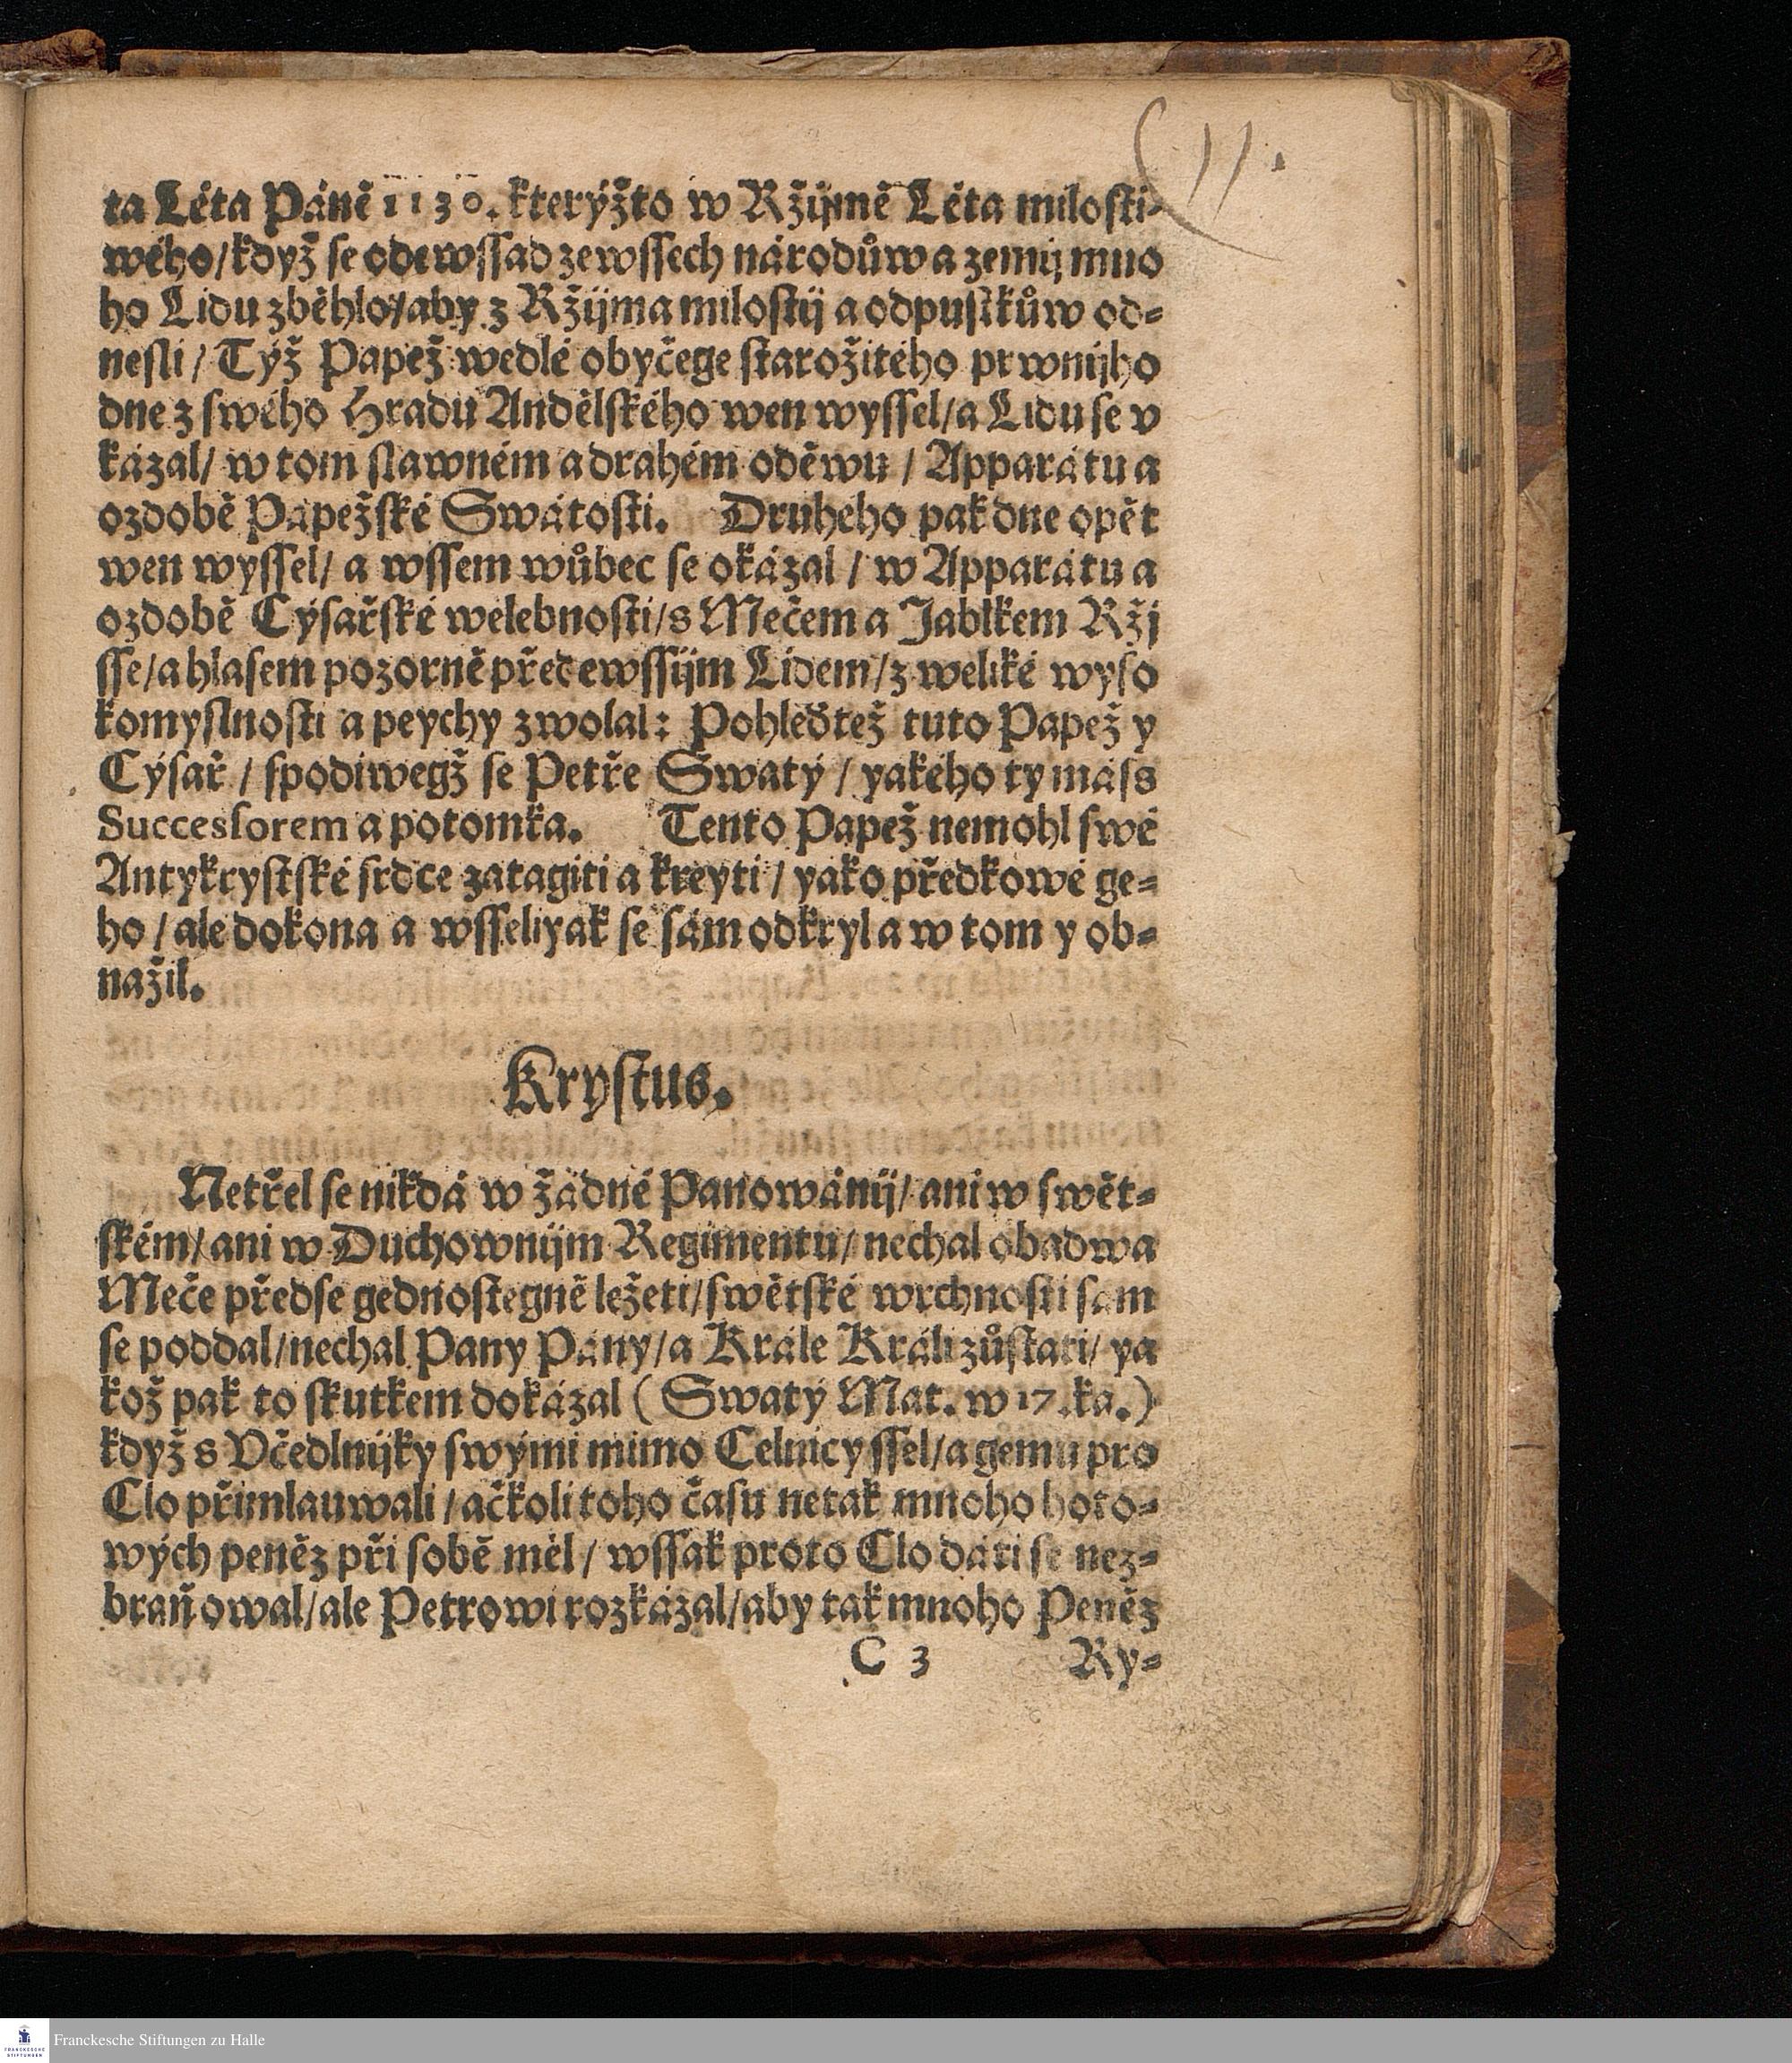 11.
ta Léta Páně 1130. kterýžto w Ržijmě Léta milosti-
wého/ když se odewssad zewssech národůw a zemij mno
ho Lidu zběhlo/ aby z Ržijma milostij a odpustkůw od=
nesli / Týž Papež wedlé obyčege starožitého prwnijho
dne z swého Hradu Andělského wen wyssel/ a Lidu se v
kázal/ w tom slawném a drahém oděwu / Apparátu a
ozdobě Papežské Swátosti. Druheho pak dne opět
wen wyssel/ a wssem wůbec se okázal / w Apparátu a
ozdobě Cýsařské welebnosti/ s Mečem a Jablkem Ržj
sse/ a hlasem pozorně předewssijm Lidem/ z weliké wyso
komyslnosti a peychy zwolal: Pohleďtež tuto Papež y
Cýsař / spodiwegž se Petře Swatý / yakého ty máss
Successorem a potomka. Tento Papež nemohl swé
Antykrystské srdce zatagiti a kreyti / yako předkowé ge=
ho / ale dokona a wsseliyak se sám odkryl a w tom y ob=
nažil.
Krystus.
Netřel se nikdá w žádné Panowánij/ ani w swět=
ském/ ani w Duchownijm Regimentu/ nechal obadwa
Meče předse gednostegně ležeti/ swětské wrchnosti sam
se poddal/ nechal Pany Pány/ a Krále Králi zůstati/ ya
kož pak to skutkem dokázal ( Swatý Mat. w 17. ka.)
když s Včedlnijky swými mimo Celnicy ssel/ a gemu pro
Clo přimlauwali / ačkoli toho času netak mnoho hoto=
wých peněz při sobě měl / wssak proto Clo dáti se nez=
braňowal/ ale Petrowi rozkázal/ aby tak mnoho Peněz
C 3 Ry=
Franckesche Stiftungen zu Halle
FRANCKESCHE
STIFTUNGEN